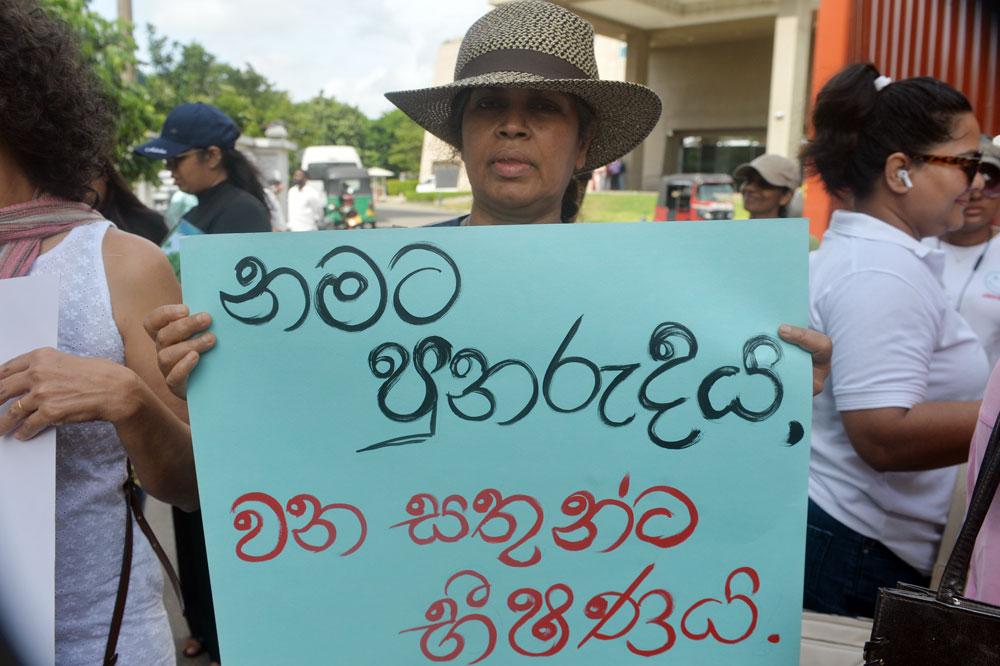 නමට
පුනරුදය,
වන සතුන්ට
භීෂණය.